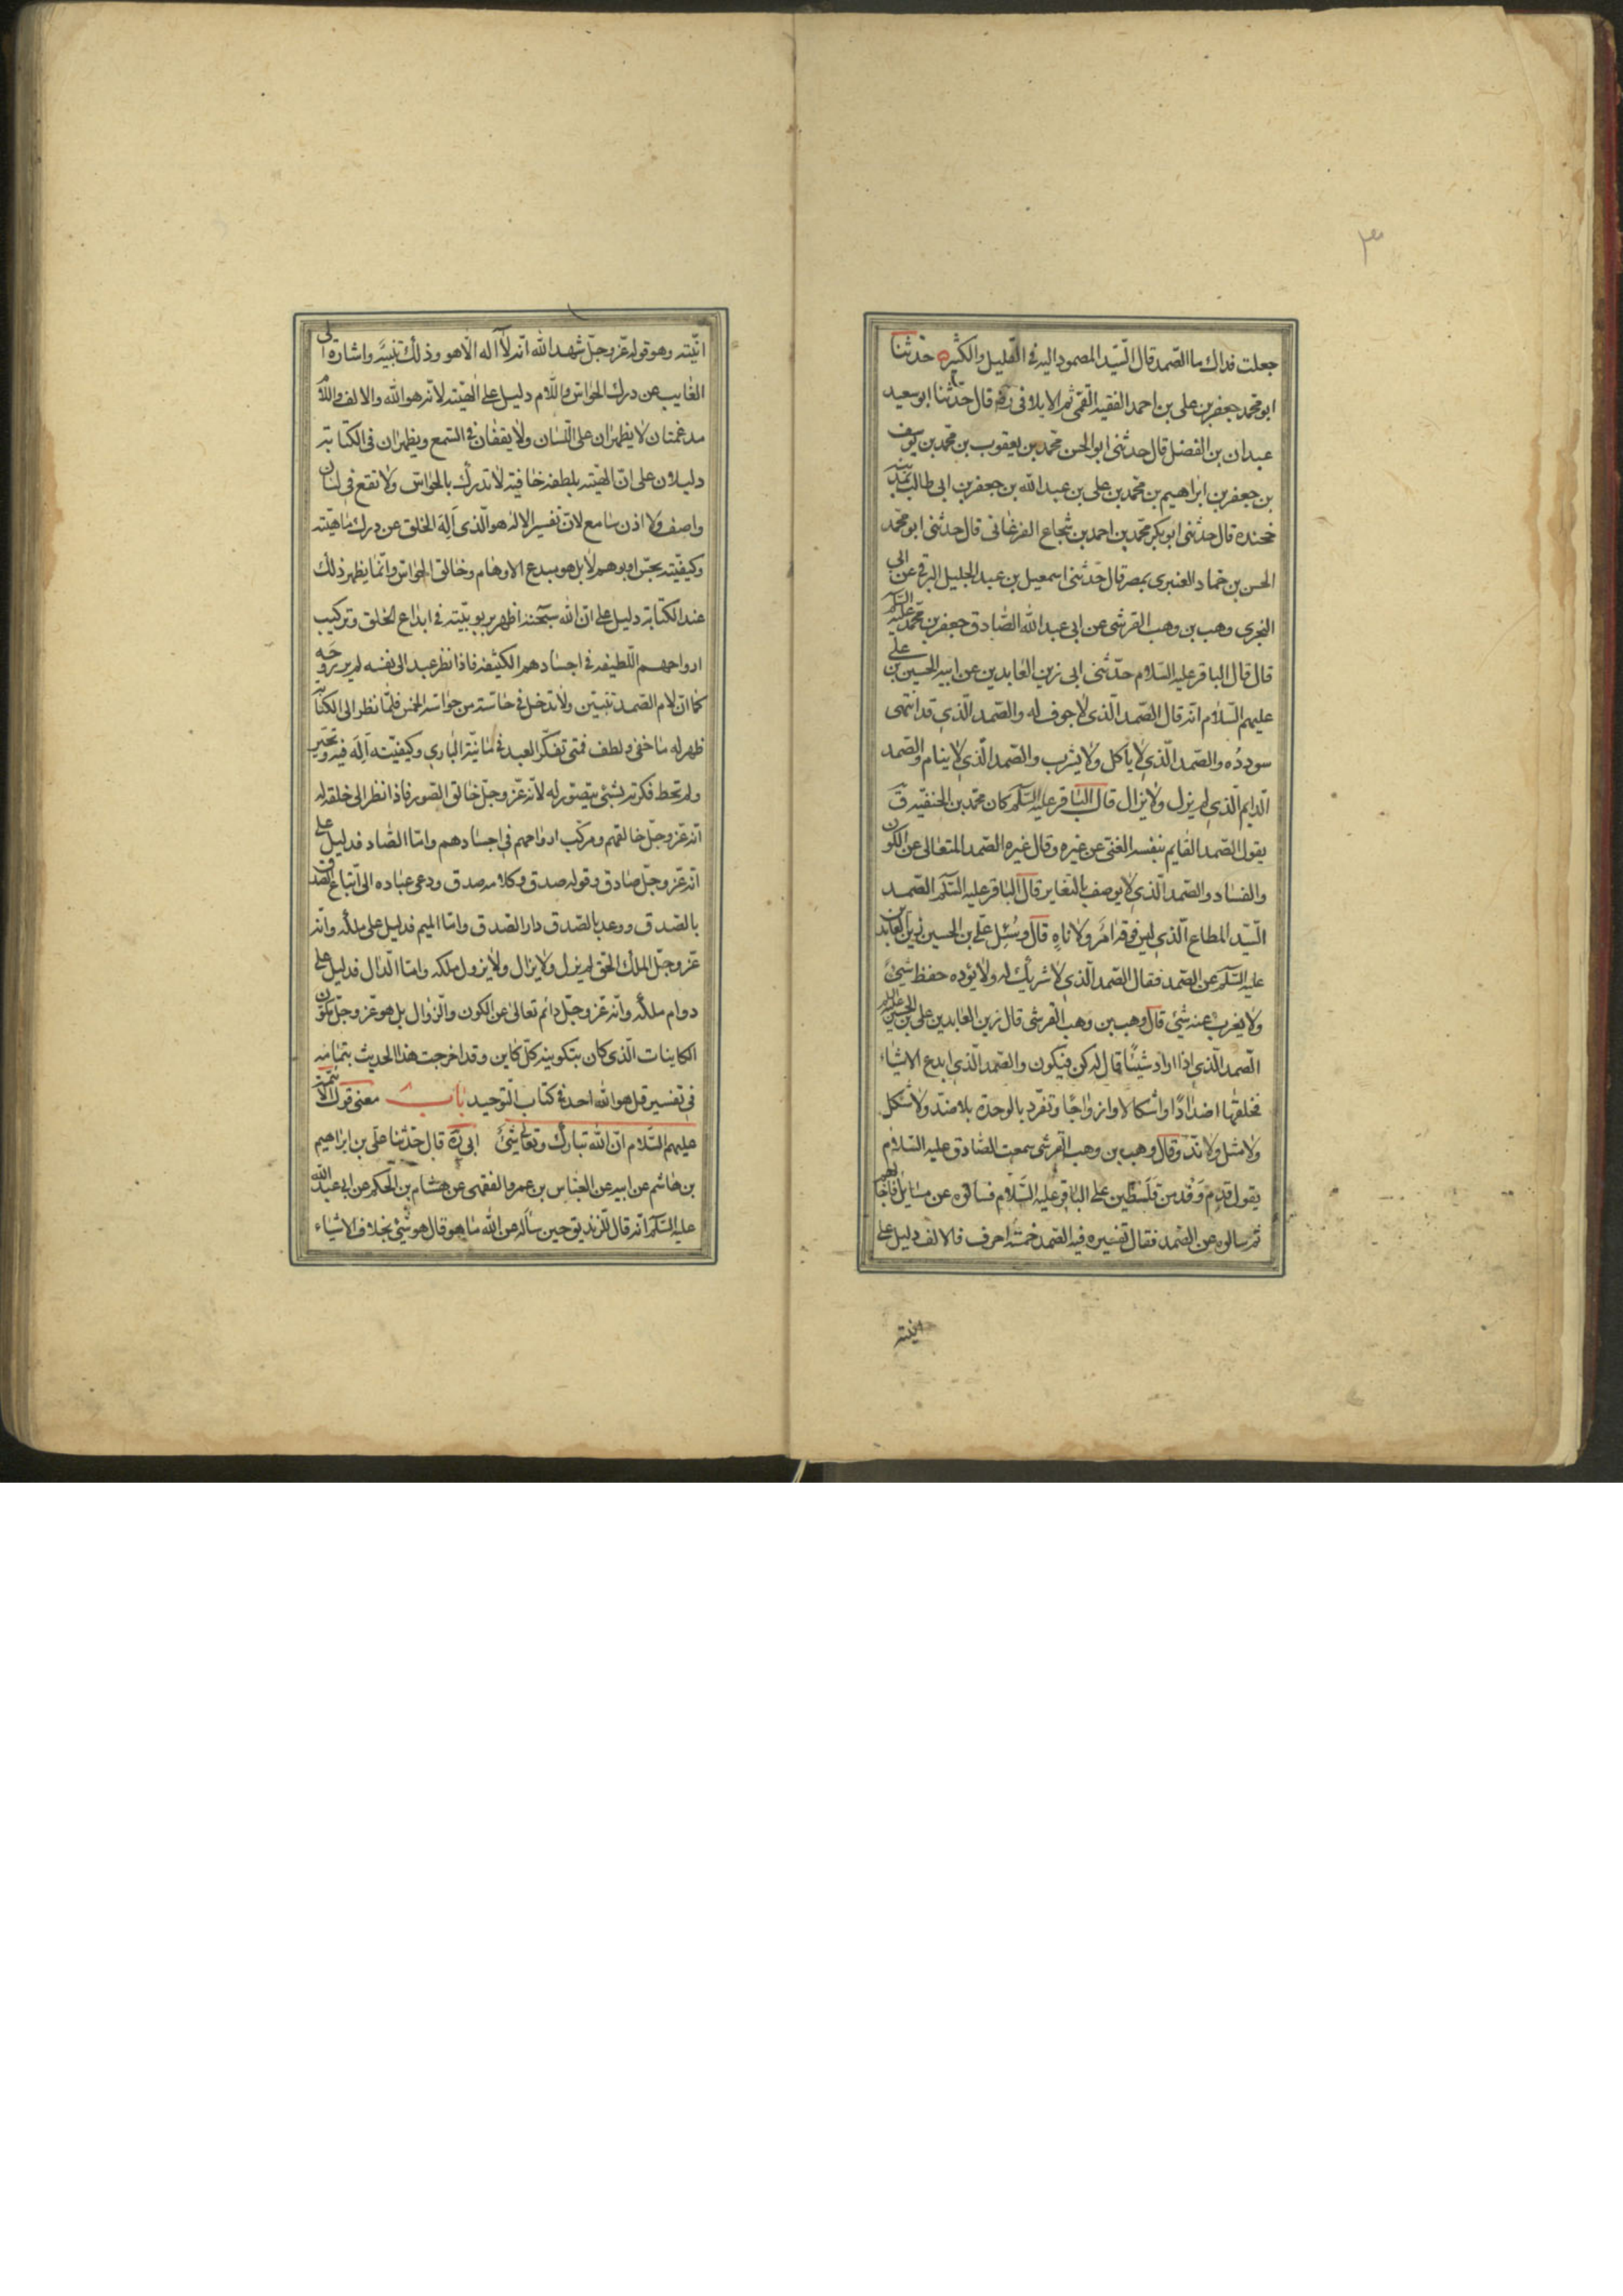 ٣
جعلت فداك ما الصّمد قال السّيّد المصمود اليه فى القليل والكثير ه حدّثنا
ابو محمد جعفر بن على بن احمد الفقيه القمى ثم الايلاقى رَه قال حدّثنا ابو سعيد
عبدان بن الفضل قال حدثنى ابو الحسن محمّد بن يعقوب بن محمّد بن يوسف
بن جعفر بن ابراهيم بن محمّد بن على بن عبدالله بن جعفر بن ابى طالب بمدينه
خجنده قال حدثنى ابو بكر محمّد بن احمد بن شجاع الفرغانى قال حدثنى ابو محمّد
الحسن بن حماد العنبرى بمصر قال حدّثنى اسمعيل بن عبد الجليل البرقى عن ابى
البخترى وهب بن وهب القرشى عن ابى عبد الله الصّادق جعفر بن محمّد عليه السّلم
قال قال الباقر عليه السّلام حدّثنى ابى زين العابدين عن ابيه الحسين بن على
عليهم السّلام انّه قال الصّمد الّذى لا جوف له والصّمد الّذى قد انتهى
سودده والصّمد الّذى لا ياكل ولا يشرب والصّمد الّذى لا ينام والصّمد
الدّايم الّذى لم يزل ولا يزال قال الباقر عليه السّلم كان محمّد بن الحنفيّه رَق
يقول الصّمد القايم بنفسه الغنى عن غيره وقال غيره الصّمد المتعالى عن الكون
والفساد والصّمد الّذى لا يوصف بالتغاير قال الباقر عليه السّلم الصّمد
السّيّد المطاع الّذى ليس فوقه امرٌ ولا ناهٍ قال وسُئل على بن الحسين زين العابدين
عليه السّلم عن الصّمد فقال الصّمد الّذى لا شريك له ولا يؤده حفظ شىء
ولا يعزب عنه شىء قال وهب بن وهب القرشى قال زين العابدين على بن الحسين عليه السلم
الصّمد الّذى اذا اراد شيئًا قال له كن فيكون والصّمد الّذى ابدع الاشياء
فخلقها اضدادًا واشكالا وازواجًا وتفرّد بالوحدة بلا ضدّ ولا شكل
ولا مثل ولا ندّ وقال وهب بن وهب القرشى سمعت الصّادق عليه السّلام
يقول قدِم وَفْد من فِلَسْطين على الباقر عليه السّلام فسالوه عن مسايل فاجابهم
ثم سالوه عن الصّمد فقال تفسيره فيه الصّمد خمسة احرف فالالف دليل على
انيّته
انّيته وهو قوله عزّ وجلّ شهد الله انّه لا آله الّا هو وذلك تنبيه واشارة الى
الغايب عن درك الحواسّ واللّام دليل على الهيّته لانّه هو الله والالف واللّام
مدغمتان لا يظهران على اللّسان ولا يقعان فى السّمع ويظهران فى الكتابة
دليلان على انّ الهيّته بلطفه خافية لا تدرك بالحواسّ ولا تقع فى لسان
واصف ولا اذن سامع لانّ تفسير الاله هو الّذى اَلِهَ الخلق عن درك ماهيّته
وكيفيّته بحسّ او بوهم لا بل هو مبدع الاوهام وخالق الحواسّ وانّما يظهر ذلك
عند الكتابة دليل على انّ الله سبحنه اظهر بربوبيّته فى ابداع الخلق وتركيب
ارواحهم اللّطيفه فى اجسادهم الكثيفه فاذا نظر عبد الى نفسه لم ير روحه
كما انّ لام الصّمد تتبيّن ولا تدخل فى حاسّة من حواسّه الخمس فلمّا نظر الى الكتابة
ظهر له ما خفى ولطف فمتى تفكّر العبد فى مائيّة البارى وكيفيّته اَلِه فيه وتحيّر
ولم تحط فكرته بشئ يتصوّر له لانّه عزّ وجلّ خالق الصّور فاذا نظر الى خلقه له
انّه عزّ وجلّ خالقهم ومركّب ارواحهم فى اجسادهم وامّا الصّاد فدليل على
انّه عزّ وجلّ صادق وقوله صدق وكلامه صدق ودعى عباده الى اتّباع الصّدق
بالصّدق ووعد بالصّدق دار الصّدق وامّا الميم فدليل على ملكه وانّه
عزّ وجلّ الملك الحقّ لم يزل ولا يزال ولا يزول ملكه وامّا الدّال فدليل على
دوام ملكه وانّه عزّ وجلّ دائم تعالى عن الكون والزّوال بل هو عزّ وجلّ مكوّن
الكاينات الّذى كان بتكوينه كلّ كاين وقد اخرجت هذا الحديث بتمامه
فى تفسير قل هو الله احد فى كتاب التّوحيد باب معنى قول الائمّة
عليهم السّلام انّ الله تبارك وتعالى شئ ابى رَه قال حدّثنا على بن ابراهيم
بن هاشم عن ابيه عن العباس بن عمرو الفقيمى عن هشام بن الحكم عن ابى عبد الله
عليه السّلم انّه قال للزنديق حين ساله عن الله ما هو قال هو شئ بخلاف الاشياء